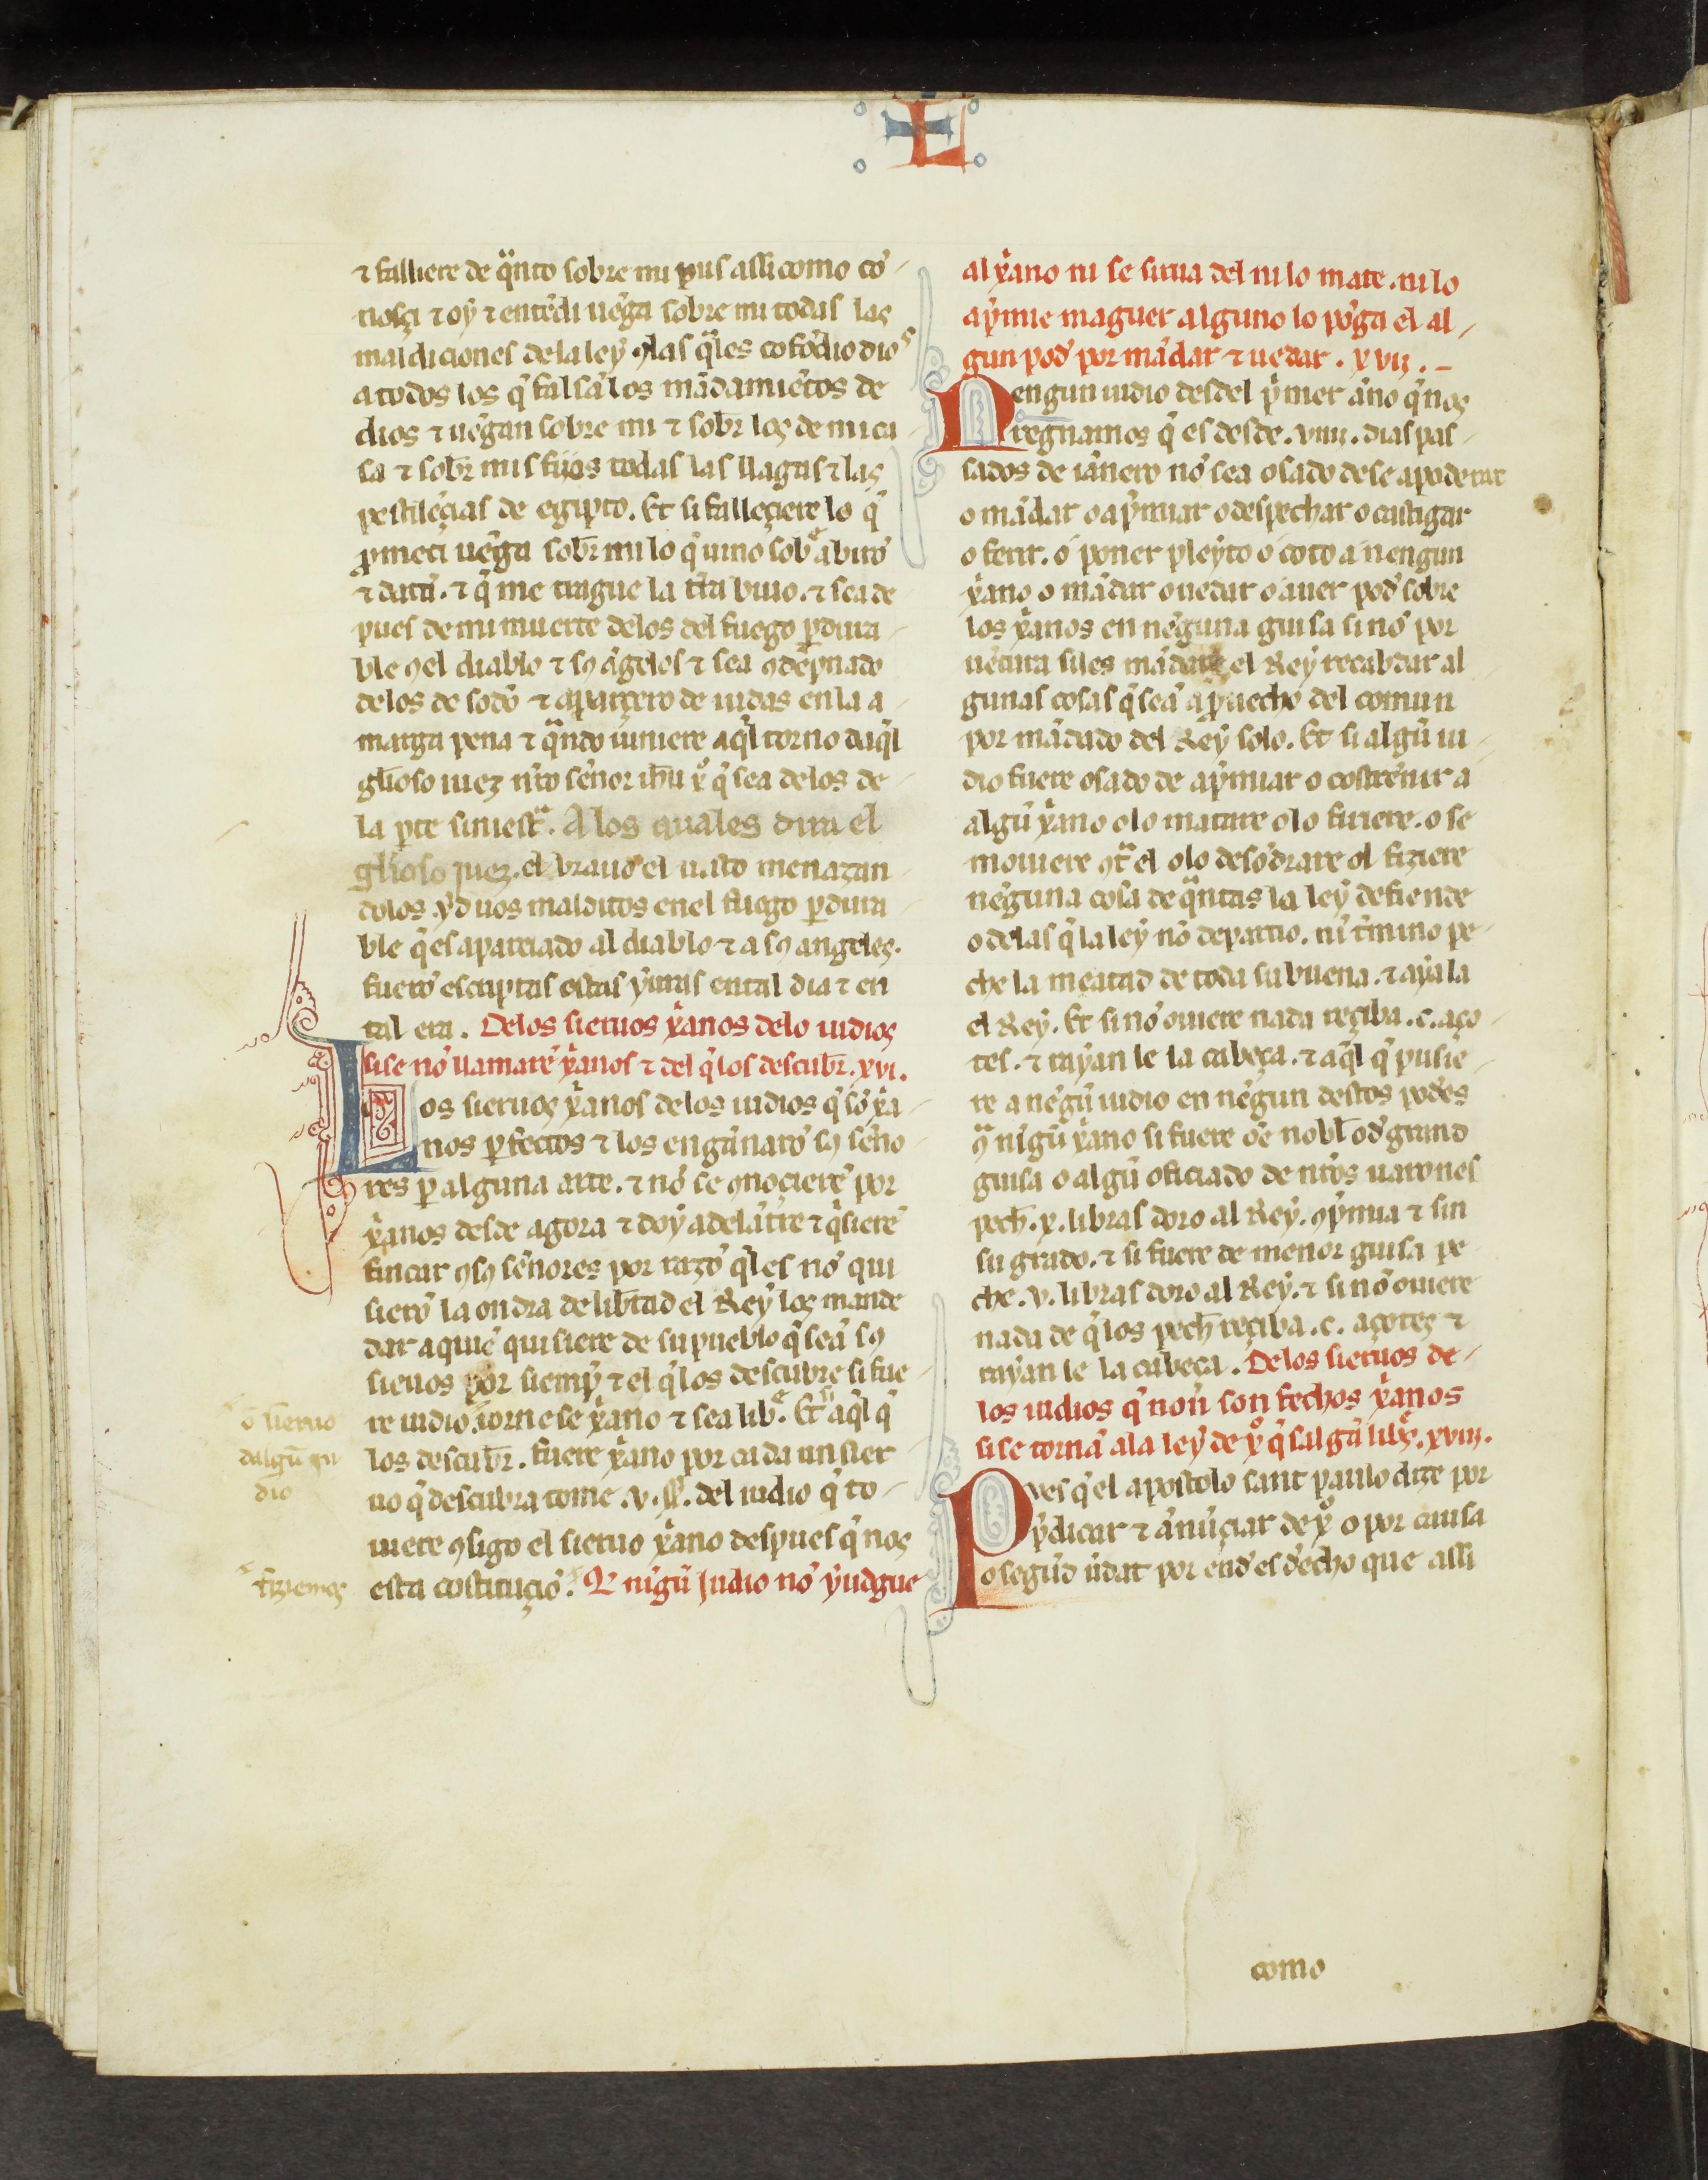 L
⁊ falliere de q̃nto sobre mi pus assi como co᷑
nosçi ⁊ oy ⁊ ente᷑di ue᷑ga sobre mi todas las
maldiciones dela ley ꝯlas q̃les cofo᷑dio dios
a todos los q̃ falsa᷑ los ma᷑damie᷑tos de
dios ⁊ ue᷑gan sobre mi ⁊ sobr̃ los de mi ca
sa ⁊ sobr̃ mis fijos todas las llagas ⁊ las
pestile᷑çias de egipto. Et si falleçiere lo q̃
ꝓmeti ue᷑ga sobr̃ mi lo q̃ uino sob᷑ abiro᷑
⁊ data᷑. ⁊ q̃ me trague la tr̃a biuo. ⁊ sea de
pues de mi muerte delos del fuego ꝑdura
ble ꝯel diablo ⁊ sꝯ a᷑geles ⁊ sea ꝯde᷑pnado
delos de sodo᷑ ⁊ aparcero de iudas en la a
marga pena ⁊ q̃ndo uiniere aq̃l torno daq̃l
gl̃ioso iuez nr̃o se᷑nor ih̃u xº q̃ sea delos de
la ꝑte siniestᵃ. A los quales dira el
gl̃ioso juez. el brauo el iusto menazan
dolos. yd uos malditos enel fuego ꝑdura
ble q̃ es aparciado al diablo ⁊ a sꝯ angeles.
fuero᷑ escriptas estas yuras en tal dia ⁊ en
tal era. Delos sieruos xᷓanos delo iudios
si se no᷑ llamare᷑ xᷓanos ⁊ del q̃ los descubr̃. xvi.
Los sieruos xᷓanos delos iudios q̃ so᷑ xᷓa
nos ꝑfectos ⁊ los enga᷑naro᷑ sꝯ se᷑no
res ꝑ alguna arte. ⁊ no᷑ se ꝯnociere᷑ por
xᷓanos desde agora ⁊ doy adela᷑tre ⁊ q̃siere᷑
fincar ꝯ sꝯ se᷑nores por razo᷑ q̃les no᷑ qui
siero᷑ la ondra de lib̃tad el Rey los mande
dar a quie᷑ quisiere de su pueblo q̃ sea᷑ sꝯ
sieuos por siemp̃ ⁊ el q̃ los descubre si fue
o᷑ sieruo
dalgu᷑ iu
dio
re iudio. torne se xᷓano ⁊ sea lib᷑. Et si aq̃l q̃
los descubr̃. fuere xᷓano por cada un sier
uo q̃ descubra tome .v. ss. del iudio q̃ to
uiere ꝯsigo el sieruo xᷓano despues q̃ nos
fiziemos
esta costituçio᷑. Q̃ ni᷑gu᷑ judio no᷑ yudgue
al xᷓano ni se sirua del ni lo mate. ni lo
ap̃mie maguer alguno lo po᷑ga el al
gun pod᷑ por ma᷑dar ⁊ uedar. xvii.
Nengun iudio desdel p̃mer a᷑no q̃ nos
regnamos q̃ es desde .viiii. dias pas
sados de ia᷑nero no᷑ sea osado de se apoderar
o ma᷑dar o ap̃miar o despechar o castigar
o ferir. o poner pleyto o coto a nengun
xᷓano o ma᷑dar o uedar o auer pod᷑ sobre
los xᷓanos en ne᷑guna guisa si no᷑ por
ue᷑tura si les ma᷑dare el Rey recabdar al
gunas cosas q̃ sea᷑ a ꝓuecho del comun
por ma᷑dado del Rey solo. Et si algu᷑ iu
dio fuere osado de ap̃miar o costre᷑nir a
algu᷑ xᷓano o lo matare o lo firiere. o se
mouiere ꝯtᵃ el o lo deso᷑drare ol fiziere
ne᷑guna cosa de q̃ntas la ley defiende
o delas q̃ la ley no᷑ departio. ni t᷑mino pe
che la meatad de toda su buena. ⁊ aya la
el Rey. Et si no᷑ ouiere nada reçiba .c. aço
tes. ⁊ rayan le la cabeça. ⁊ aq̃l q̃ pusie
re a ne᷑gu᷑ iudio en ne᷑gun destos pod᷑es
q̃ ni᷑gu᷑ xᷓano si fuere o᷑e nobl̃ o d᷑ grand
guisa o algu᷑ oficiado de nr̃os uarones
pech̃. x. libras doro al Rey. ꝯp̃mia ⁊ sin
su grado. ⁊ si fuere de menor guisa pe
che .v. libras doro al Rey. ⁊ si no᷑ ouiere
nada de q̃ los pech̃ reçiba .c. açotes ⁊
rayan le la cabeça. Delos sieruos de
los iudios q̃ non son fechos xᷓanos
si se torna᷑ ala ley de xº q̃ salga᷑ libr̃s. xviii.
Pves q̃ el apostolo sant paulo dize por
p̃dicar ⁊ a᷑nu᷑çiar de xº o por causa
o segu᷑d u᷑dat por end᷑ es d᷑echo que assi
como